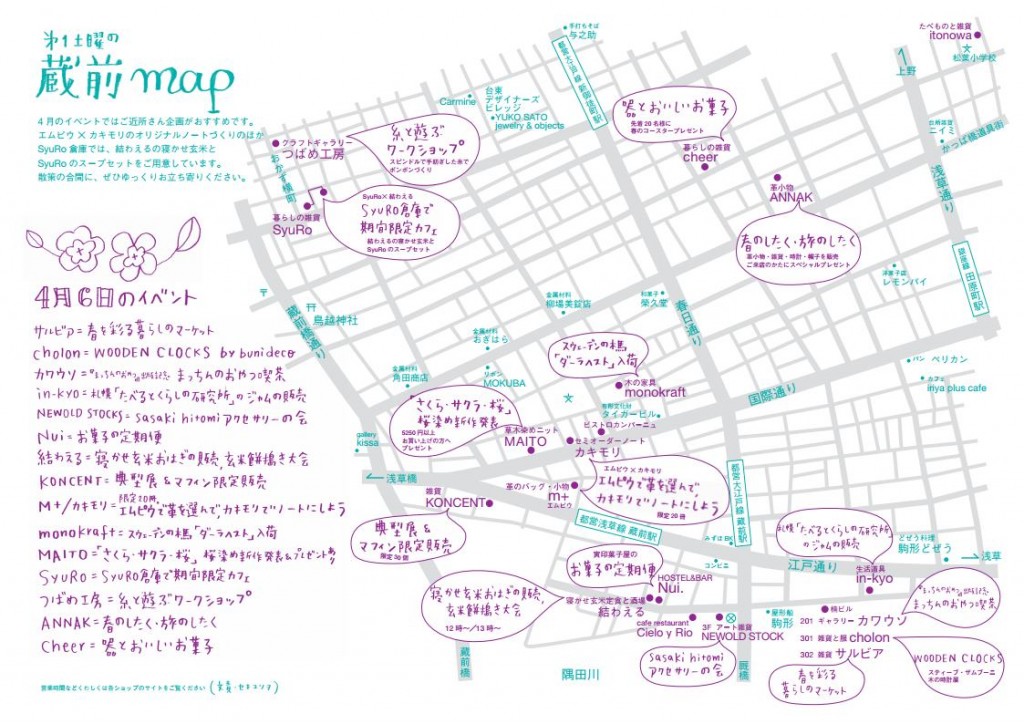 第1土曜の
蔵前 map
4月のイベントではご近所さん企画がおすすめです。
エムピウ×カキモリのオリジナルノートづくりのほか
SyuRo 倉庫では、結わえるの寝かせ玄米と
SyuRo のスープセットをご用意しています。
散策の合間に、ぜひゆっくりお立ち寄りください。
4月6日のイベント
サルビア=春を彩る暮らしのマーケット
cholon=WOODEN CLOCKS by bunideco
まっちんのおやつ喫茶
in-kyo=札幌「たべるとくらしの研究所」のジャムの販売
NEWOLD STOCKS=sasaki hitomi アクセサリーの会
Nui=お菓子の定期便
結わえる=寝かせ玄米おはぎの販売,玄米餅搗き大会
KONCENT=典型展&マフィン限定販売
M+/カキモリ=限定20冊 エムピウで革を選んでカキモリでノートにしよう
monokraft=スウェーデンの木馬「ダーラヘスト」入荷
MAITO=「さくら・サクラ・桜」桜染め新作発表&プレゼントあり
SyuRo=SyuRO倉庫で期間限定カフェ
つばめ工房=糸と遊ぶワークショップ
ANNAK=春のしたく・旅のしたく
Cheer=器とおいしいお菓子
営業時間などくわしくは各ショップのサイトをご覧ください
クラフトギャラリー
つばめ工房
糸と遊ぶ
ワークショップ
スピンドルで手紡ぎした糸で
ポンポンづくり
おかず横町
暮らしの雑貨
SyuRo
SyuRo×結わえる
SyuRO倉庫で
期間限定カフェ
結わえるの寝かせ玄米と
SyuRo のスープセット
Carmine
台東
デザイナーズ
ビレッジ
YUKO SATO
jewelry & objects
手打ちそば
与之助
都営大江戸線 新御徒町駅
器とおいしいお菓子
先着20名様に
春のコースタープレゼント
暮らしの雑貨
cheer
革小物
ANNAK
春のしたく・旅のしたく
革小物・雑貨・時計・帽子を販売
ご来店のかたにスペシャルプレゼント
たべものと雑貨
itonowa
松葉小学校
上野
ニイミ
かっぱ橋道具街
浅草通り
銀座線 田原町駅
洋菓子店
レモンパイ
〒
鳥越神社
蔵前橋通り
金属材料
柳場美錠店
和菓子
榮久堂
春日通り
金属材料
おぎはら
リボン
MOKUBA
金属材料
角田商店
スウェーデンの木馬
「ダーラヘスト」入荷
木の家具
monokraft
国際通り
パン
ペリカン
カフェ
iriya plus cafe
タイガービル
ビストロカンパーニュ
セミオーダーノート
カキモリ
さくら・サクラ・桜」
桜染め新作発表
5250円以上
お買い上げの方へ
プレゼント
草木染めニット
MAITO
gallery
kissa
浅草橋
雑貨
KONCENT
典型展&
マフィン限定販売
限定30個
革のバッグ・小物
m+
エムピウ
エムピウ×カキモリ
エムピウで革を選んで,
カキモリでノートにしよう
限定20冊
都営浅草線 蔵前駅
都営大江戸線 蔵前駅
みずほBK
コンビニ
江戸通り
札幌「たべるとくらしの研究所」
のジャムの販売
どぜう料理
駒形どぜう
浅草
生活道具
in-kyo
寛印菓子屋の
お菓子の定期便
HOSTEL&BAR
Nui.
寝かせ玄米おはぎの販売,
玄米餅搗き大会
12時〜/13時〜
寝かせ玄米定食と酒場
結わえる
cafe restaurant
Cielo y Rio
3F アート雑貨
NEWOLD STOCK
sasaki hitomi
アクセサリーの会
屋形船
駒形
蔵前橋
隅田川
厩橋
楠ビル
201 ギャラリー カワウソ
301 雑貨と服 cholon
302 雑貨 サルビア
まっちんのおやつ喫茶
WOODEN CLOCKS
スティーブ・ザムブーニ
木の時計展
春を彩る
暮らしのマーケット